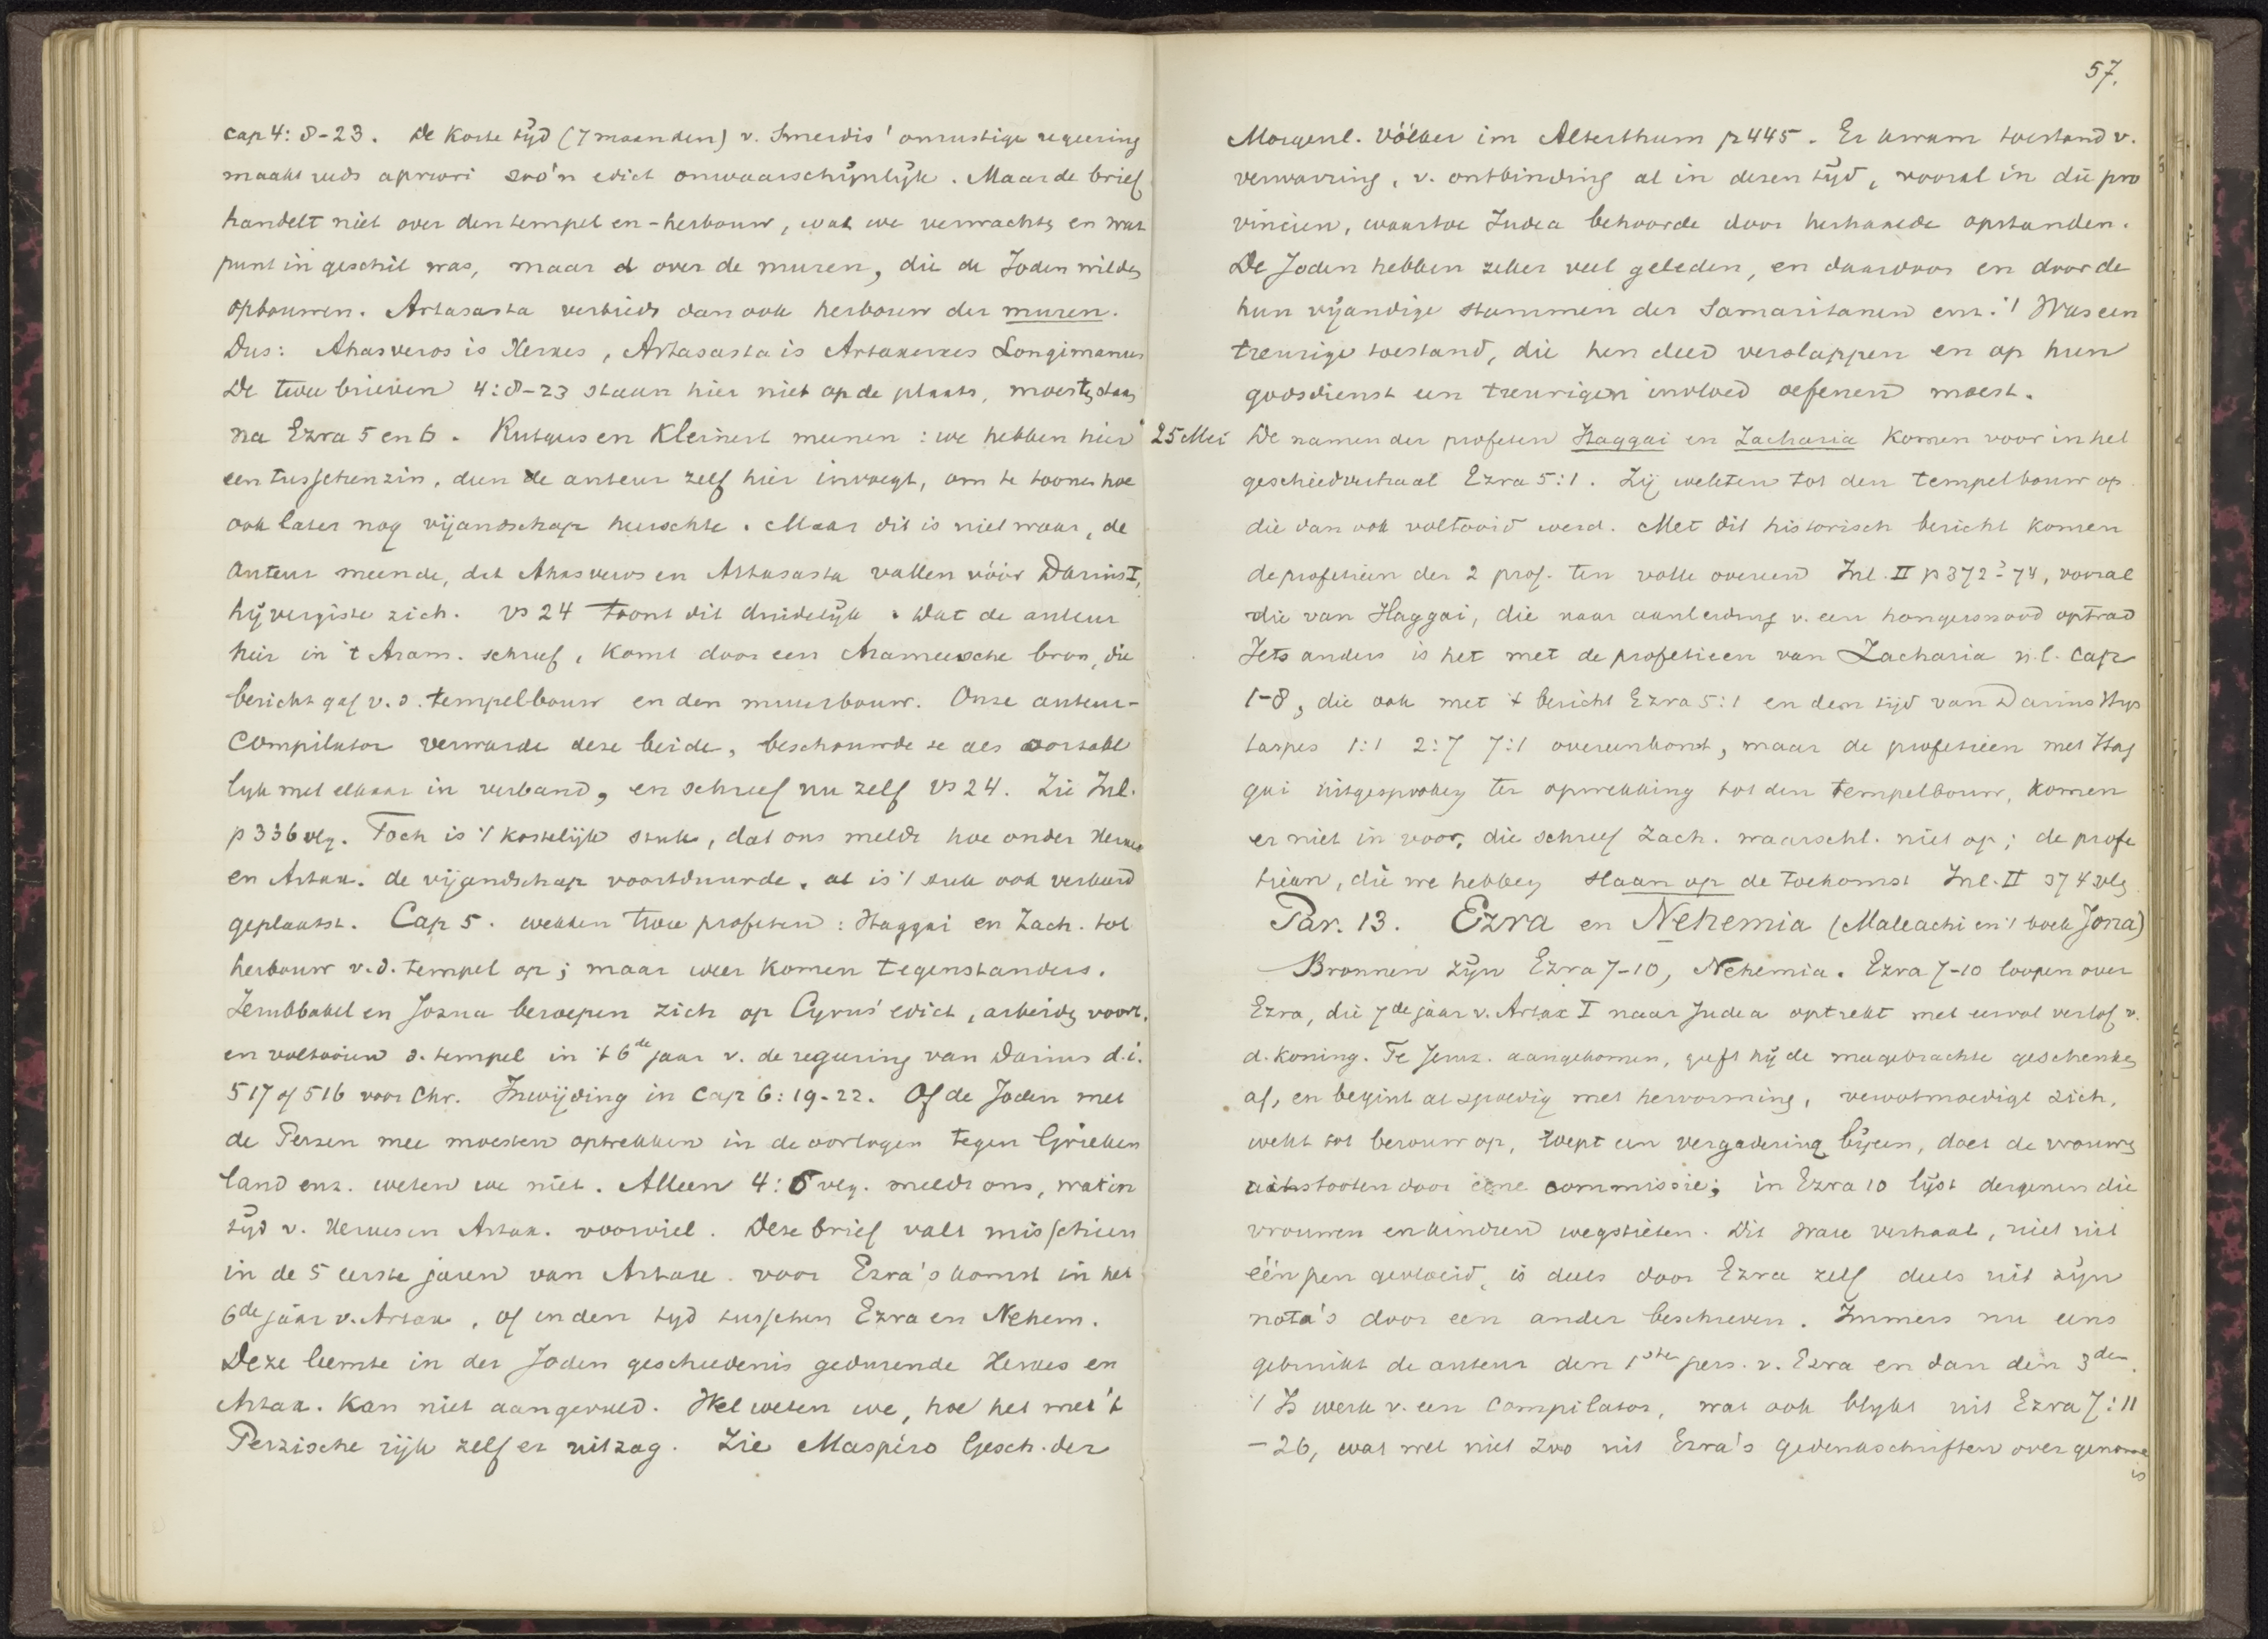 cap 4: 8-23. De korte tijd (7 maanden) v. Smerdis' onrustige regeering
maakt reeds apriori zoo'n edict onwaarschijnlijk. Maar de brief
handelt niet over den tempel en -herbouw, wat we verwachten en wat
punt in geschil was, maar over de muren, die de Joden wilden
opbouwen. Artasasta verbiedt dan ook herbouw der muren.
Dus: Ahasveros is Xerxes, Artasasta is Artaxerxes Longimanus
De twee brieven 4:8-23 staan hier niet op de plaats, moesten staan
na Ezra 5 en 6. Rutgers en Kleinert meenen: we hebben hier
een tusschenzin, dien de auteur zelf hier invoegt, om te toonen hoe
ook later nog vijandschap heerschte. Maar dit is niet waar, de
auteur meende, dat Ahasveros en Artasasta vallen vóór Darius I,
hij vergiste zich. vs 24 toont dit duidelijk. Wat de auteur
hier in 't Aram. schreef, komt door een Arameesche bron, die
bericht gaf v. d. tempelbouw en den muurbouw. Onze auteur-
compilator verwarde deze beide, beschouwde ze als oorzake
lijk met elkaar in verband, en schreef nu zelf vs 24. Zie Inl.
p 336 vlg. Toch is 't kostelijk stuk, dat ons meldt hoe onder Xerxes
en Artax. de vijandschap voortduurde, al is 't stuk ook verkeerd
geplaatst. Cap 5. wekken twee profeten: Haggai en Zach. tot
herbouw v.d. tempel op; maar weer komen tegenstanders.
Zerubbabel en Jozua beroepen zich op Cyrus' edict, arbeiden voort,
en voltooien d. tempel in 't 6de jaar v. de regeering van Darius d.i.
517 of 516 voor Chr. Inwijding in cap 6: 19-22. Of de Joden met
de Perzen mee moesten optrekken in de oorlogen tegen Grieken
land enz. weten we niet. Alleen 4:6 vlg. meldt ons, wat in
tijd v. Xerxes en Artax. voorviel. Deze brief valt misschien
in de 5 eerste jaren van Artaxe. voor Ezra's komst in het
6de jaar v. Artax, of in den tijd tusschen Ezra en Nehem.
Deze leemte in der Joden geschiedenis gedurende Xerxes en
Artax. kan niet aangevuld. Wel weten we, hoe het met 't
Perzische rijk zelf er uitzag. Zie Maspéro Gesch. der
57.
Morgenl. Völker im Alterthum p 445. Er kwam toestand v.
verwarring, v. ontbinding al in dezen tijd, vooral in die pro
vincien, waartoe Judea behoorde door herhaalde opstanden.
De Joden hebben zeker veel geleden, en daardoor en door de
hun vijandige stammen der Samaritanen enz. 't Was een
treurige toestand, die hen deed verslappen en op hun
godsdienst een treurigen invloed oefenen moest.
25 Mei De namen der profeten Haggai en Zacharia komen voor in het
geschiedverhaal Ezra 5:1. Zij wekten tot den tempelbouw op
die dan ook voltooid werd. Met dit historisch bericht komen
de profetieën der 2 prof. ten volle overeen Inl. II p 372-74, vooral
die van Haggai, die naar aanleiding v. een hongersnood optrad
Iets anders is het met de profetieen van Zacharia n.l. cap
1-8, die ook met 't bericht Ezra 5:1 en den tijd van Darius Hys
taspes 1:1 2:7 7:1 overeenkomt, maar de profetieën met Hag
gai uitgesproken ter opwekking tot den tempelbouw, komen
er niet in voor, die schreef Zach. waarschl. niet op; de profe
tieën, die we hebben slaan op de toekomst Inl. II 374 vlg
Par. 13. Ezra en Nehemia (Maleachi en 't boek Jona)
Bronnen zijn Ezra 7-10, Nehemia. Ezra 7-10 loopen over
Ezra, die 7de jaar v. Artax I naar Judea optrekt met verlof v.
d. koning. Te Jeruz. aangekomen, geeft hij de meegebrachte geschenken
af, en begint al spoedig met hervorming, verootmoedigt zich,
wekt tot berouw op, roept een vergadering bijeen, doet de vrouwen
uitstooten door eene commissie; in Ezra 10 lijst dergenen die
vrouwen en kinderen wegstieten. Dit ware verhaal, niet uit
één pen gevloeid, is deels door Ezra zelf deels uit zijn
nota's door een ander beschreven. Immers nu eens
gebruikt de auteur den 1sten pers. v. Ezra en dan den 3den.
't Is werk v. een compilator, wat ook blijkt uit Ezra 7:11
-26, wat wel niet zoo uit Ezra's gedenkschriften over genomen
is